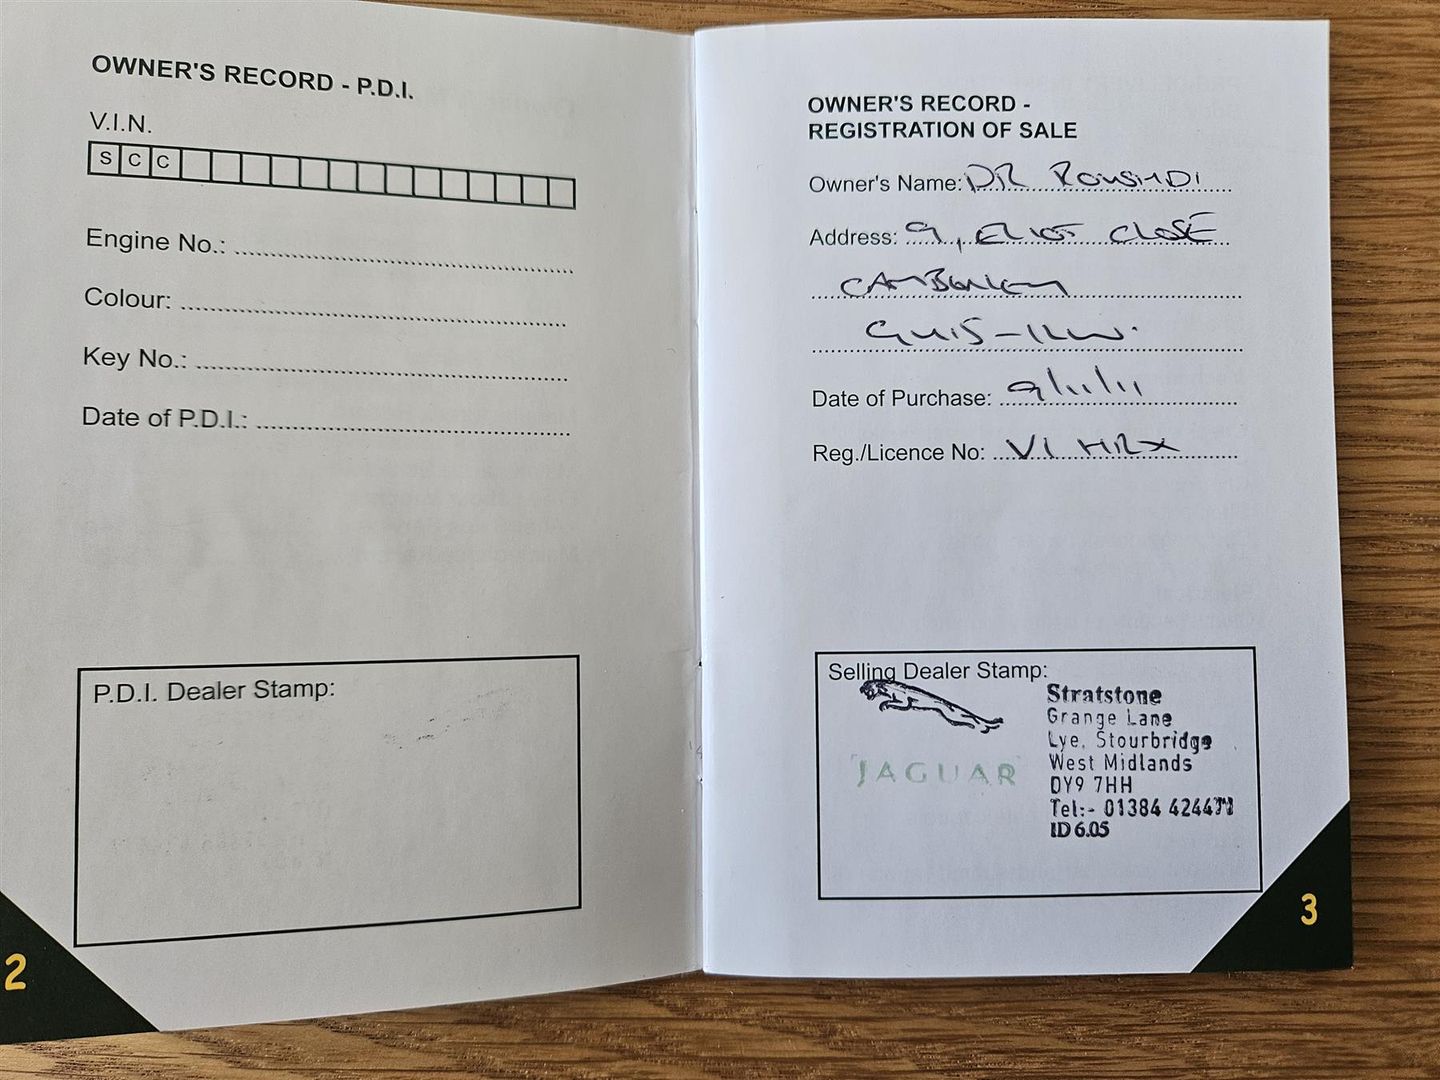 OWNER'S RECORD - P.D.I.
V.I.N.
S C C
Engine No.:
Colour:
Key No.:
Date of P.D.I.:
P.D.I. Dealer Stamp:
2
OWNER'S RECORD -
REGISTRATION OF SALE
Owner's Name: DR ROUSHDI
Address: 9, ELIOT CLOSE
CAMBERLEY
GU15
Date of Purchase: 9/11/11
Reg./Licence No: V1 HRX
Selling Dealer Stamp:
JAGUAR
Stratstone
Grange Lane
Lye, Stourbridge
West Midlands
DY9 7HH
Tel:- 01384
ID 6.05
3